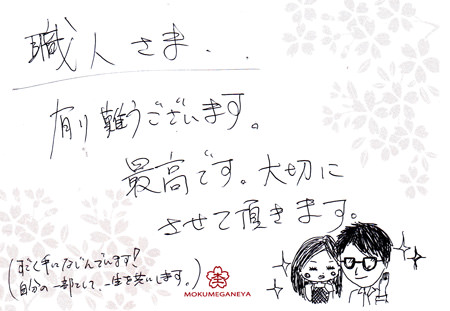 職人さま、
有り難うございます。
最高です。大切に
させて頂きます。
(すごく手になじんでいます!
自分の一部として、一生を共にします。)
MOKUMEGANEYA